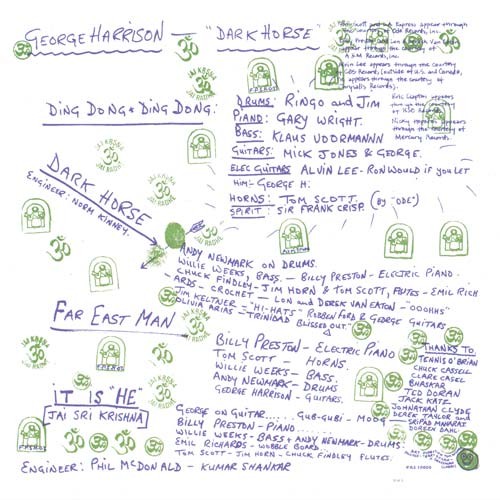 GEORGE HARRISON — "DARK HORSE
Tom Scott and L.A. Express appear through
the courtesy of Ode Records, Inc.
appear through the courtesy of
A & M Records, Inc.
Alvin Lee appears through the courtesy
of CBS Records, (outside of U.S. and Canada,
appears through the courtesy of
Chrysalis Records).
Eric Clapton appears
through the courtesy
of RSO Records.
Nicky Hopkins appears
through the courtesy of
Mercury Records.
DING DONG * DING DONG:
DRUMS: RINGO AND JIM
PIANO: GARY WRIGHT.
BASS: KLAUS VOORMANNN
GUITARS: MICK JONES & GEORGE.
ELEC GUITARS ALVIN LEE - RON WOULD IF YOU LET
HIM! - GEORGE H.
HORNS: TOM SCOTT. (BY "ODE")
SPIRIT: SIR FRANK CRISP.
DARK HORSE
ENGINEER: NORM KINNEY.
ANDY NEWMARK ON DRUMS.
WILLIE WEEKS, BASS — BILLY PRESTON — ELECTRIC PIANO.
CHUCK FINDLEY — JIM HORN & TOM SCOTT, FLUTES - EMIL RICH
-ARDS - CROCHET — LON AND DEREK VAN EATON — "OOOHHS"
JIM KELTNER — "HI-HATS" ROBBEN FORD & GEORGE GUITARS
OLIVIA ARIAS - TRINIDAD BLISSED OUT.
FAR EAST MAN
BILLY PRESTON — ELECTRIC PIANO
TOM SCOTT — HORNS.
WILLIE WEEKS — BASS
ANDY NEWMARK - DRUMS
GEORGE HARRISON - GUITARS.
THANKS TO
TENNIS O'BRIAN
CHUCK CASSELL
CLARE CASEL
BHASKAR
TED DORAN
JACK KATE
JOHNATHAN CLYDE
DEREK TAYLOR AND
SRIPAD MAHARAJ
DOREEN DAHL
iT iS "HE"
(JAI SRI KRISHNA)
GEORGE ON GUITAR...... GUB-GUBI - MOOG
BILLY PRESTON - PIANO.......
WILLIE WEEKS - BASS + ANDY NEWMARK - DRUMS
EMIL RICHARDS - WOBBLE BOARD.
TOM SCOTT - JIM HORN - CHUCK FINDLEY FLUTES.
ENGINEER: PHIL McDONALD - KUMAR SHANKAR
JAI KRSNA
ॐ
JAI RADHE
F.P.S.H.O.T.